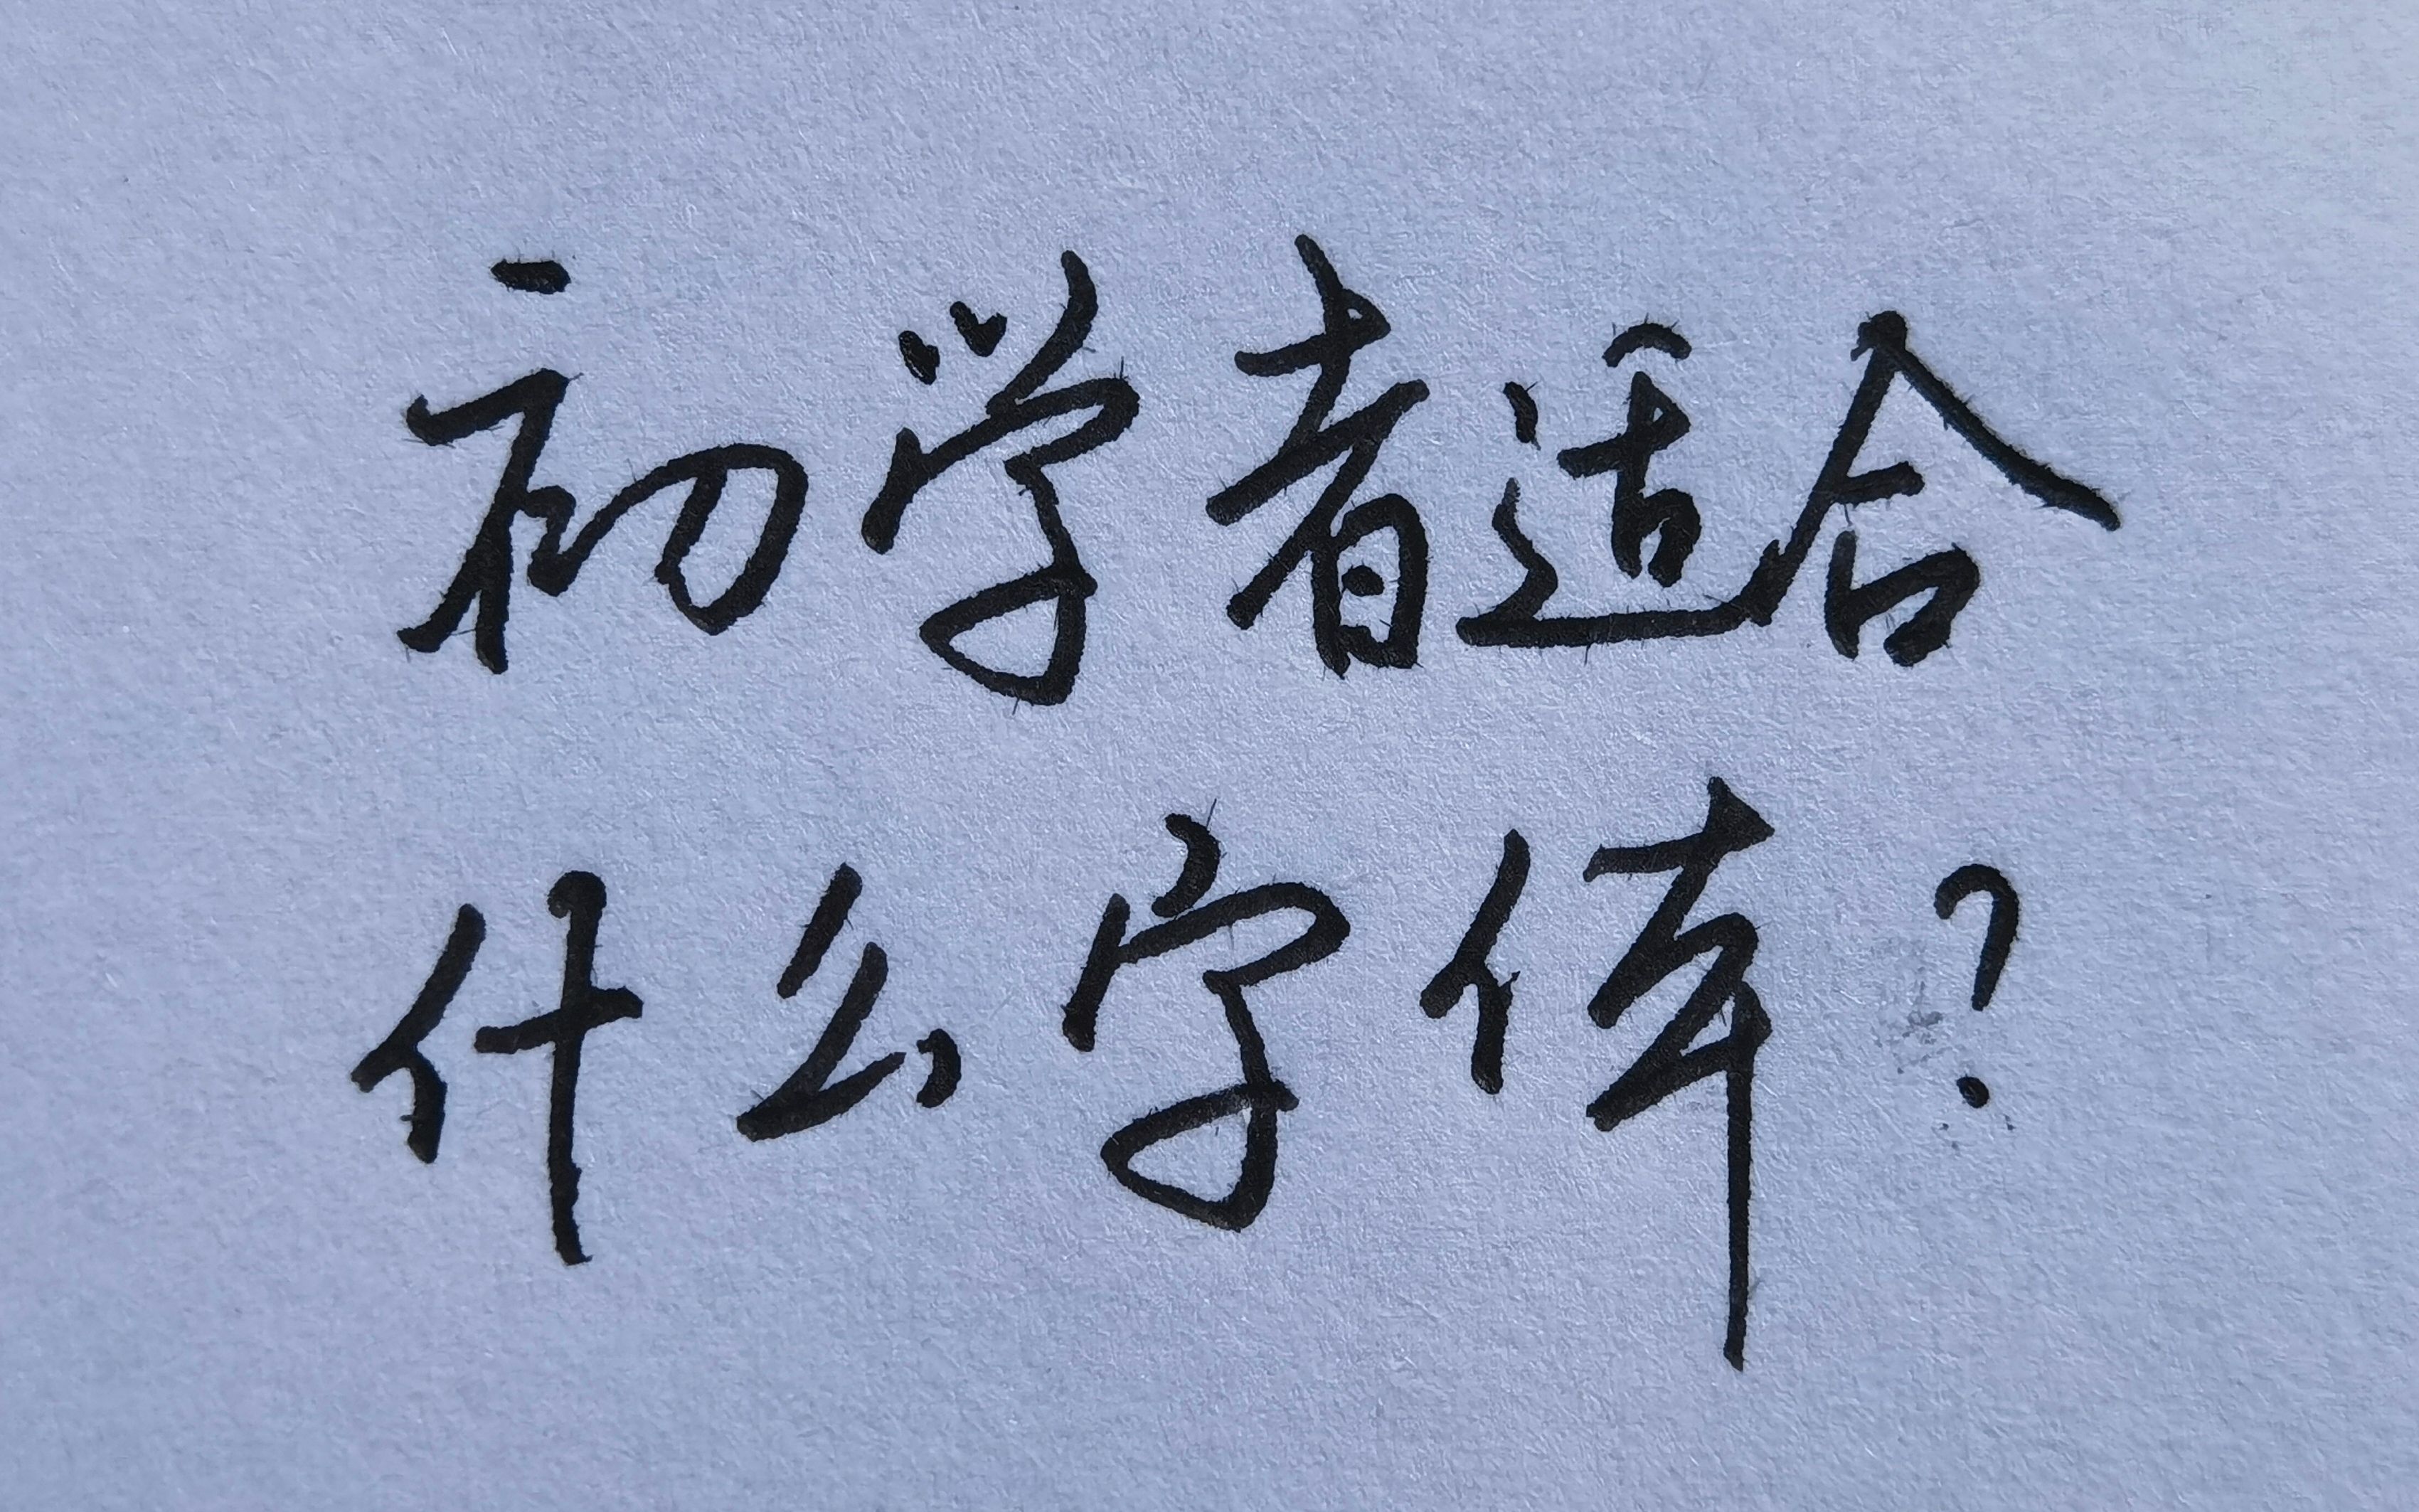 初学者适合
什么字体？